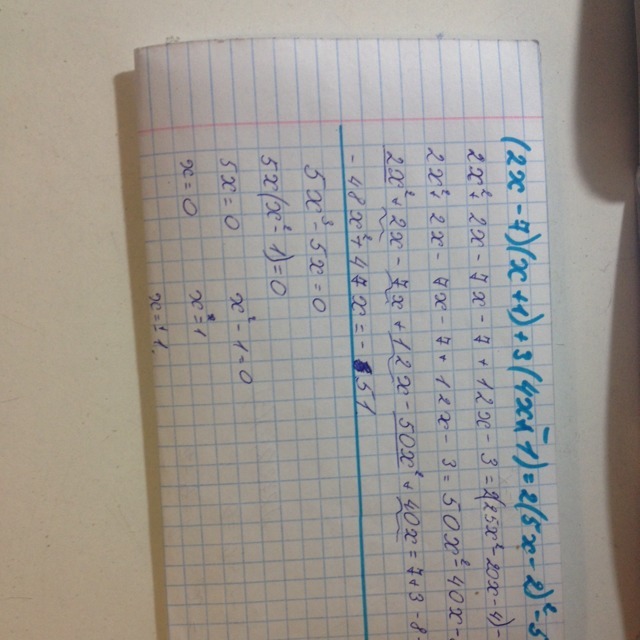 (2x-7)(x+1)+3(4x-1)=2(5x-2)²-5
2x²+2x-7x-7+12x-3=2(25x²-20x-4)-
2x²+2x-7x-7+12x-3=50x²-40x-
2x²+2x-7x+12x-50x²+40x=7+3-8-
-48x²+47x=-51
5x³-5x=0
5x(x²-1)=0
5x=0 x²-1=0
x=0 x²=1
x=±1